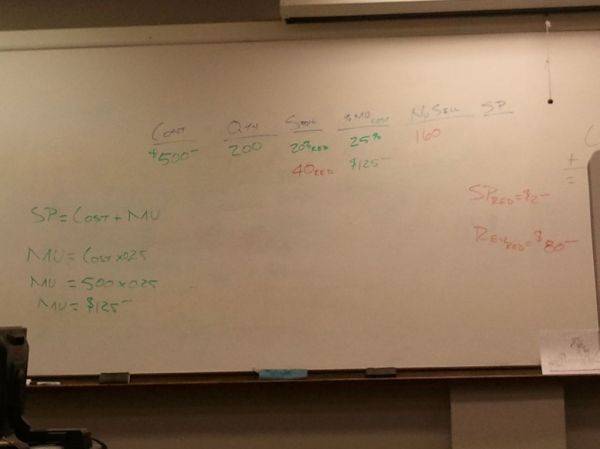 COST QTY %MU COST NO SELL SP
$500- 200 20% RED 25% 160
40 RED $125-
SP RED = $2-
SP = COST + MU
RED = $80-
MU = COST x 0.25
MU = 500 x 0.25
MU = $125-
+
=